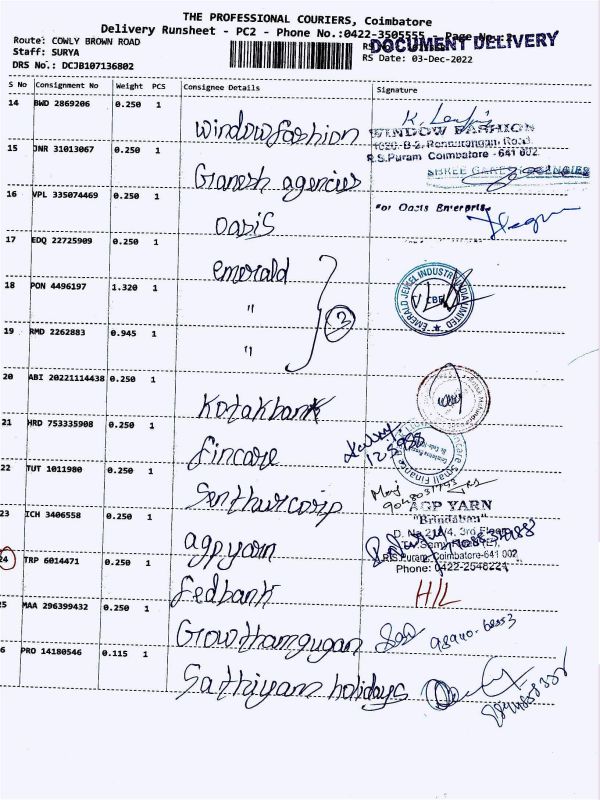 THE PROFESSIONAL COURIERS, Coimbatore
Delivery Runsheet - PC2 - Phone No.:0422-3505555 - Page No. 2
DOCUMENT DELIVERY
Route: COWLY BROWN ROAD
Staff: SURYA
RS Date: 03-Dec-2022
DRS No.: DCJB107136802
S No Consignment No Weight PCS Consignee Details Signature
14 BWD 2869206 0.250 1
window fashion
WINDOW FASHION
R.S.Puram, Coimbatore - 641 002
15 JNR 31013067 0.250 1
Ganesh agencies
SHREE GANESH AGENCIES
16 VPL 335074469 0.250 1
oasis
For Oasis Enterprise
17 EDQ 22725909 0.250 1
emerald
18 PON 4496197 1.320 1
"
3
EMERALD JEWEL INDUSTRY INDIA LIMITED
CBE
19 RMD 2262883 0.945 1
"
20 ABI 20221114438 0.250 1
Kotak bank
21 HRD 753335908 0.250 1
fincare
Fincare Small Finance
22 TUT 1011980 0.250 1
Senthur corip
23 ICH 3406558 0.250 1
agp yarn
AGP YARN
"Brindavan"
R.S.Puram, Coimbatore-641 002
Phone: 0422-2546221
24 TRP 6014471 0.250 1
fedbank
H/L
25 MAA 296399432 0.250 1
Growthamgugan
26 PRO 14180546 0.115 1
Sathiyam holidays